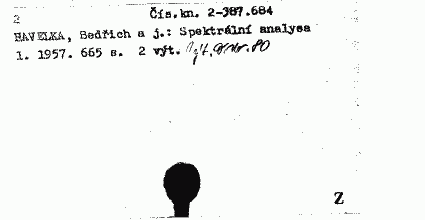 2
Čís.kn. 2-387.684
HAVELKA, Bedřich a j.: Spektrální analysa
1. 1957. 665 s. 2 výt.
Z